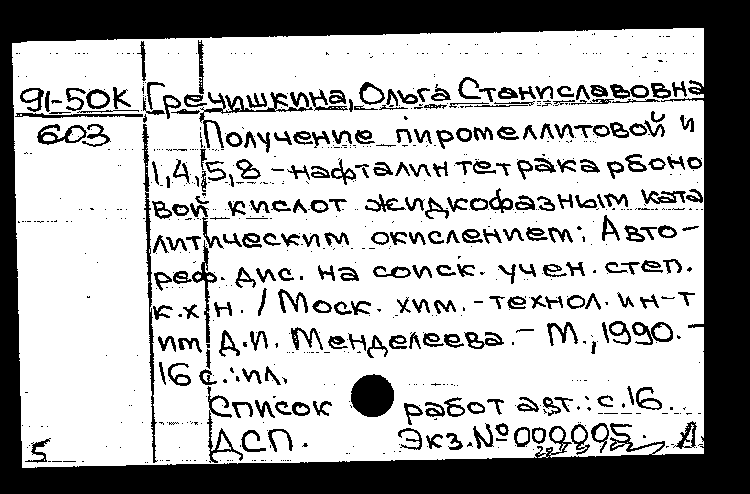 91-50К Гречишкина, Ольга Станиславовна
603 Получение пиромеллитовой и
1,4,5,8-нафталинтетракарбоно
вой кислот жидкофазным ката
литическим окислением: Авто-
реф. дис. на соиск. учен. степ.
к.х.н. / Моск. хим.-технол. ин-т
им Д.И. Менделеева. - М., 1990. -
16 с.: ил.
Список работ авт.: с.16.
ДСП. Экз.№ 000005. Д.
5